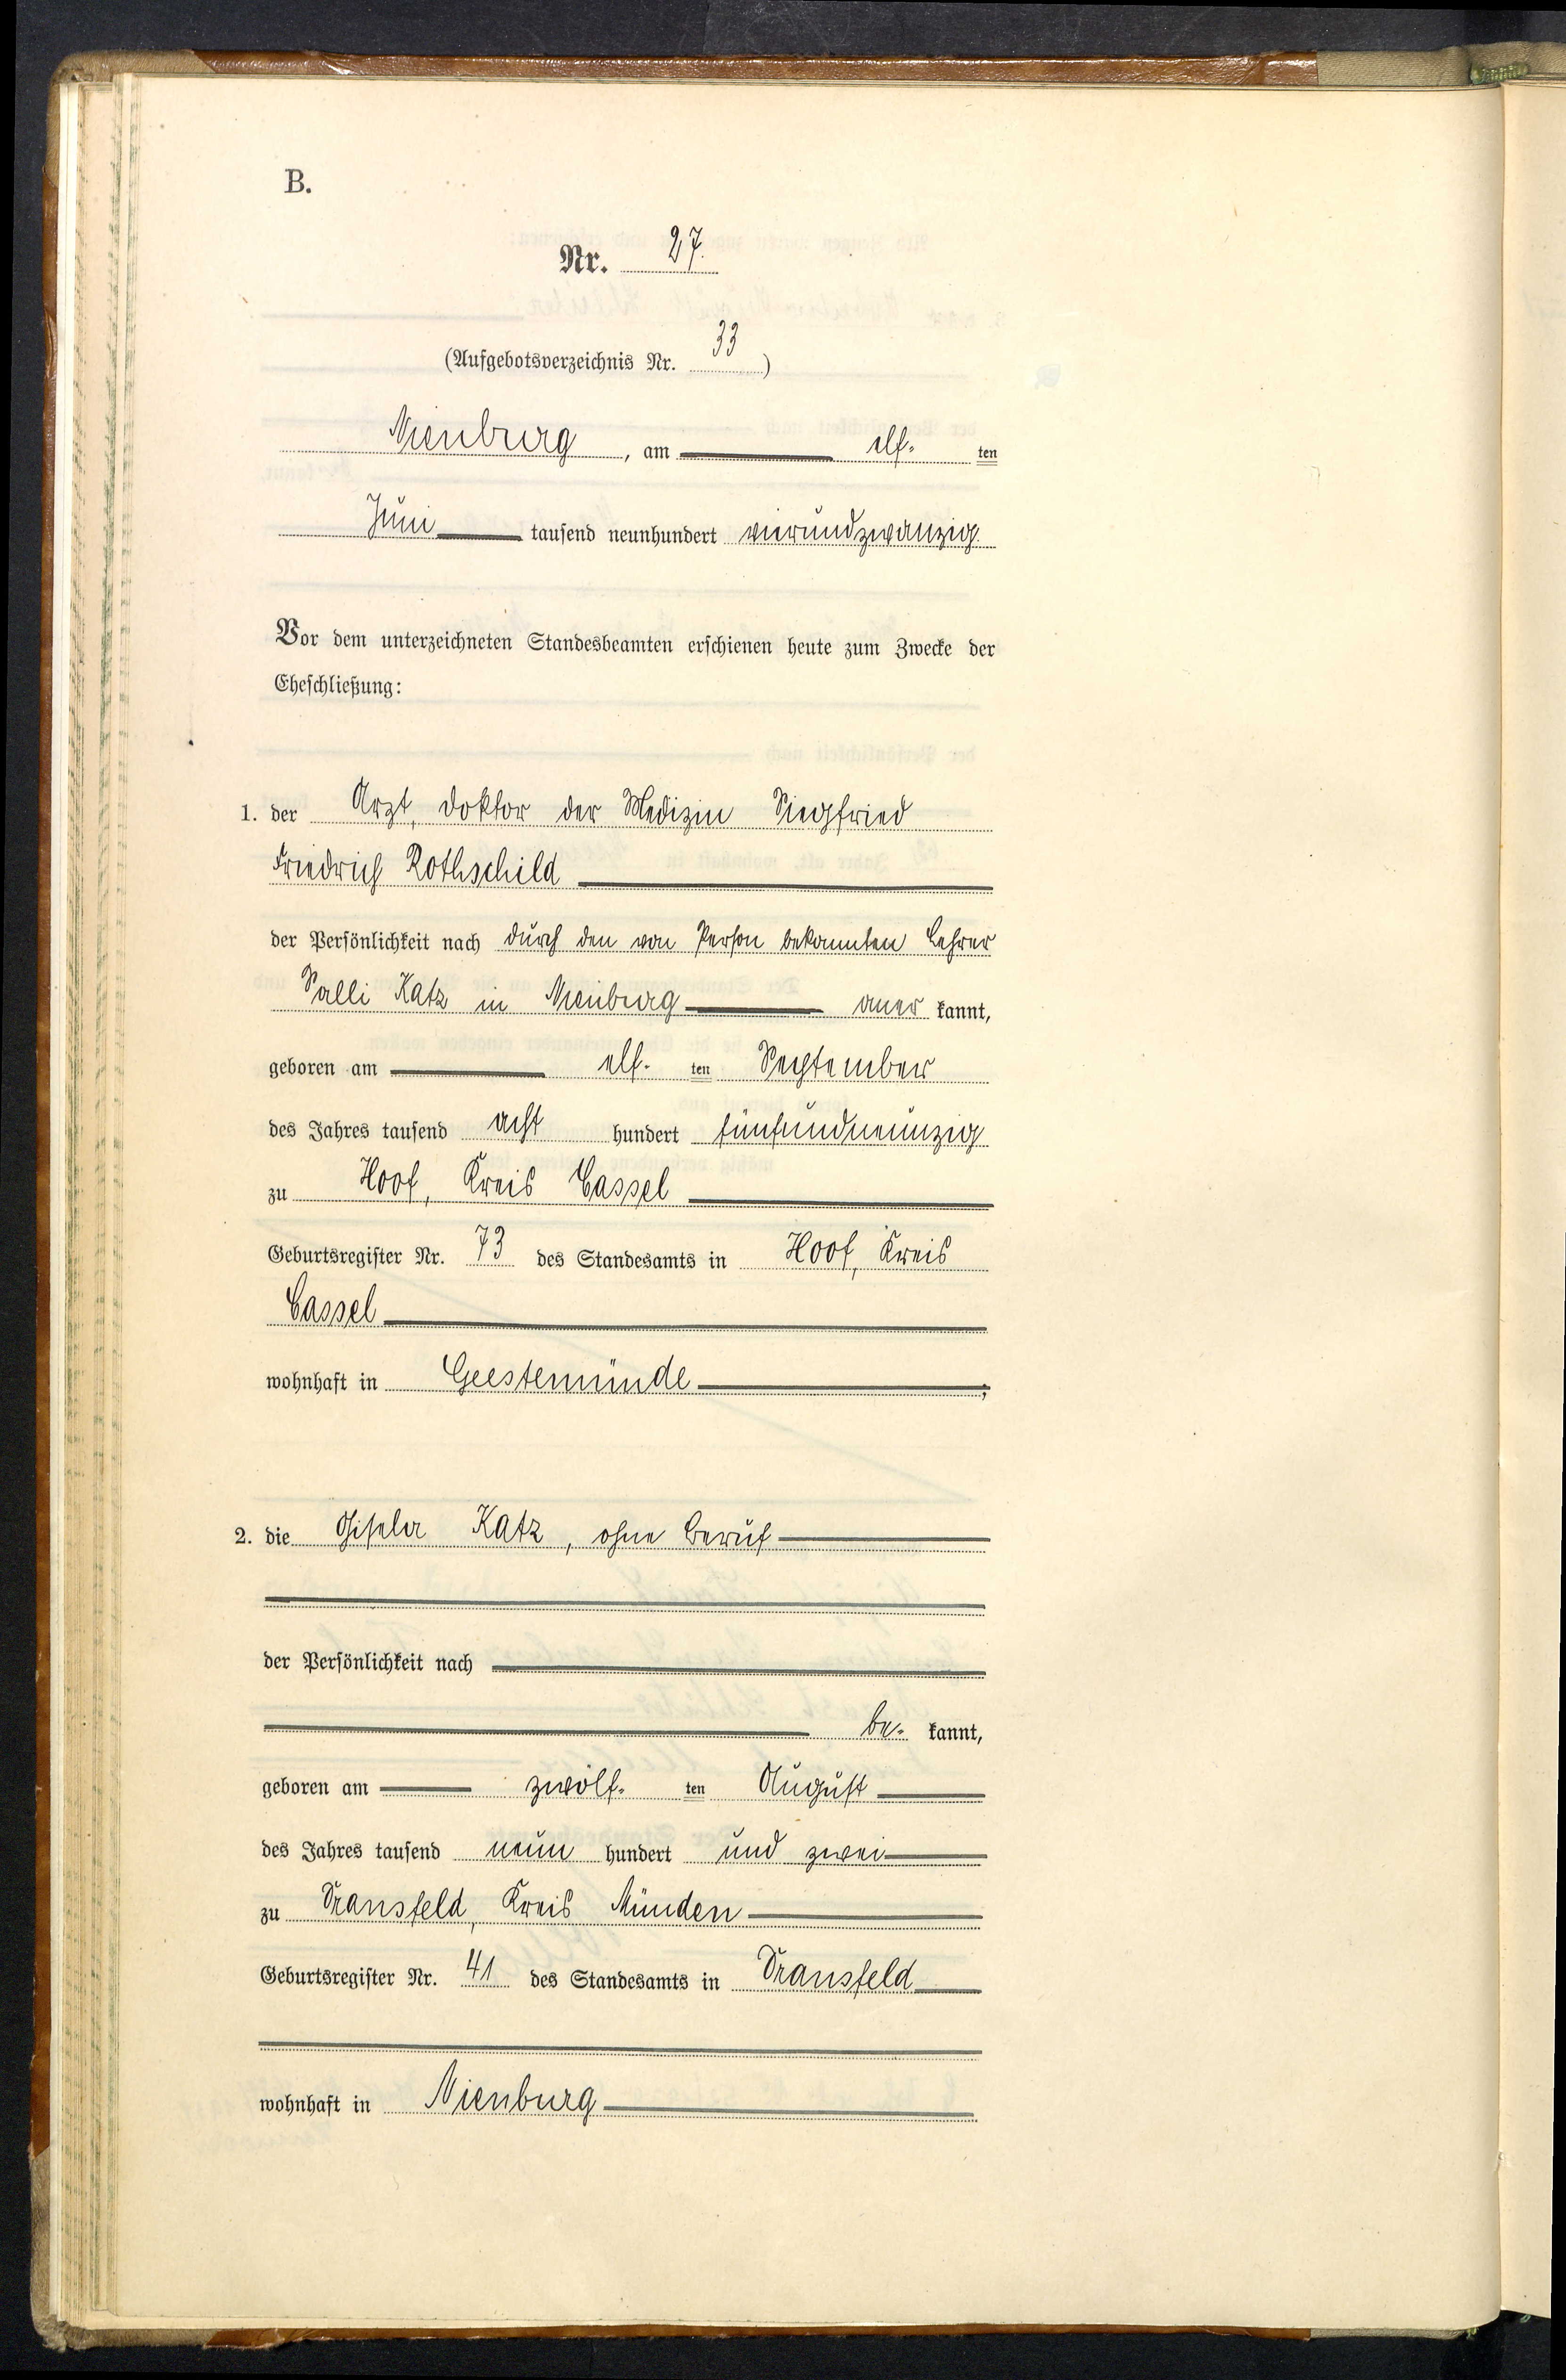 B.
Nr. 27.
(Aufgebotsverzeichnis Nr. 33)
Nienburg, am elf- ten
Juni tausend neunhundert vierundzwanzig.
Vor dem unterzeichneten Standesbeamten erschienen heute zum Zwecke der
Eheschließung:
1. der Arzt, Doktor der Medizin Siegfried
Friedrich Rothschild
der Persönlichkeit nach durch den von Person bekannten Lehrer
Salli Katz in Nienburg aner kannt,
geboren am elf- ten September
des Jahres tausend acht hundert fünfundneunzig
zu Hoof, Kreis Cassel
Geburtsregister Nr. 73 des Standesamts in Hoof, Kreis
Cassel
wohnhaft in Geestemünde;
2. die Gisela Katz, ohne Beruf
der Persönlichkeit nach
be- kannt,
geboren am zwölf- ten August
des Jahres tausend neun hundert und zwei
zu Dransfeld, Kreis Münden
Geburtsregister Nr. 41 des Standesamts in Dransfeld
wohnhaft in Nienburg